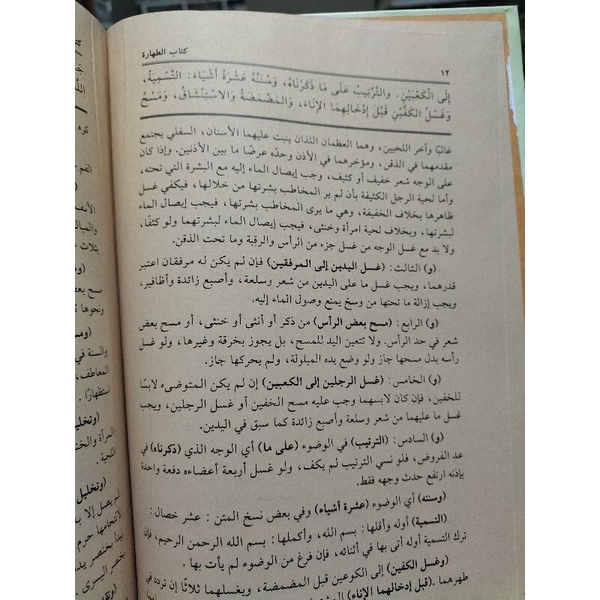 ١٢
كتاب الطهارة
إِلَى الْكَعْبَيْنِ. وَالتَّرْتِيبُ عَلَى مَا ذَكَرْنَاهُ، وَسُنَنُهُ عَشَرَةُ أَشْيَاءَ: التَّسْمِيَةُ،
وَغَسْلُ الْكَفَّيْنِ قَبْلَ إِدْخَالِهِمَا الإِنَاءَ، وَالْمَضْمَضَةُ وَالاسْتِنْشَاقُ، وَمَسْحُ
غالبًا وآخر اللحيين، وهما العظمان اللذان ينبت عليهما الأسنان، السفلي يجتمع
مقدمهما في الذقن، ومؤخرهما في الأذن وحدّه عرضًا ما بين الأذنين. وإذا كان
على الوجه شعر خفيف أو كثيف، وجب إيصال الماء إليه مع البشرة التي تحته،
وأما لحية الرجل الكثيفة بأن لم ير المخاطب بشرتها من خلالها، فيكفي غسل
ظاهرها بخلاف الخفيفة، وهي ما يرى المخاطب بشرتها، فيجب إيصال الماء
لبشرتها، وبخلاف لحية امرأة وخنثى، فيجب إيصال الماء لبشرتهما ولو كثفا،
ولا بد مع غسل الوجه من غسل جزء من الرأس والرقبة وما تحت الذقن.
(و) الثالث: (غسل اليدين إلى المرفقين) فإن لم يكن له مرفقان اعتبر
قدرهما، ويجب غسل ما على اليدين من شعر وسلعة، وأصبع زائدة وأظافير،
ويجب إزالة ما تحتها من وسخ يمنع وصول الماء إليه.
(و) الرابع: (مسح بعض الرأس) من ذكر أو أنثى أو خنثى، أو مسح بعض
شعر في حد الرأس. ولا تتعين اليد للمسح، بل يجوز بخرقة وغيرها، ولو غسل
رأسه بدل مسحها جاز ولو وضع يده المبلولة، ولم يحركها جاز.
(و) الخامس: (غسل الرجلين إلى الكعبين) إن لم يكن المتوضىء لابسًا
للخفين، فإن كان لابسهما وجب عليه مسح الخفين أو غسل الرجلين، ويجب
غسل ما عليهما من شعر وسلعة وأصبع زائدة كما سبق في اليدين.
(و) السادس: (الترتيب) في الوضوء (على ما) أي الوجه الذي (ذكرناه) في
عد الفروض، فلو نسي الترتيب لم يكف، ولو غسل أربعة أعضاءه دفعة واحدة
بإذنه ارتفع حدث وجهه فقط.
(وسننه) أي الوضوء (عشرة أشياء) وفي بعض نسخ المتن: عشر خصال:
(التسمية) أوله وأقلها: بسم الله، وأكملها: بسم الله الرحمن الرحيم، فإن
ترك التسمية أوله أتى بها في أثنائه، فإن فرغ من الوضوء لم يأت بها.
(وغسل الكفين) إلى الكوعين قبل المضمضة، ويغسلهما ثلاثًا إن تردد في
طهرهما. (قبل إدخالهما الإناء)